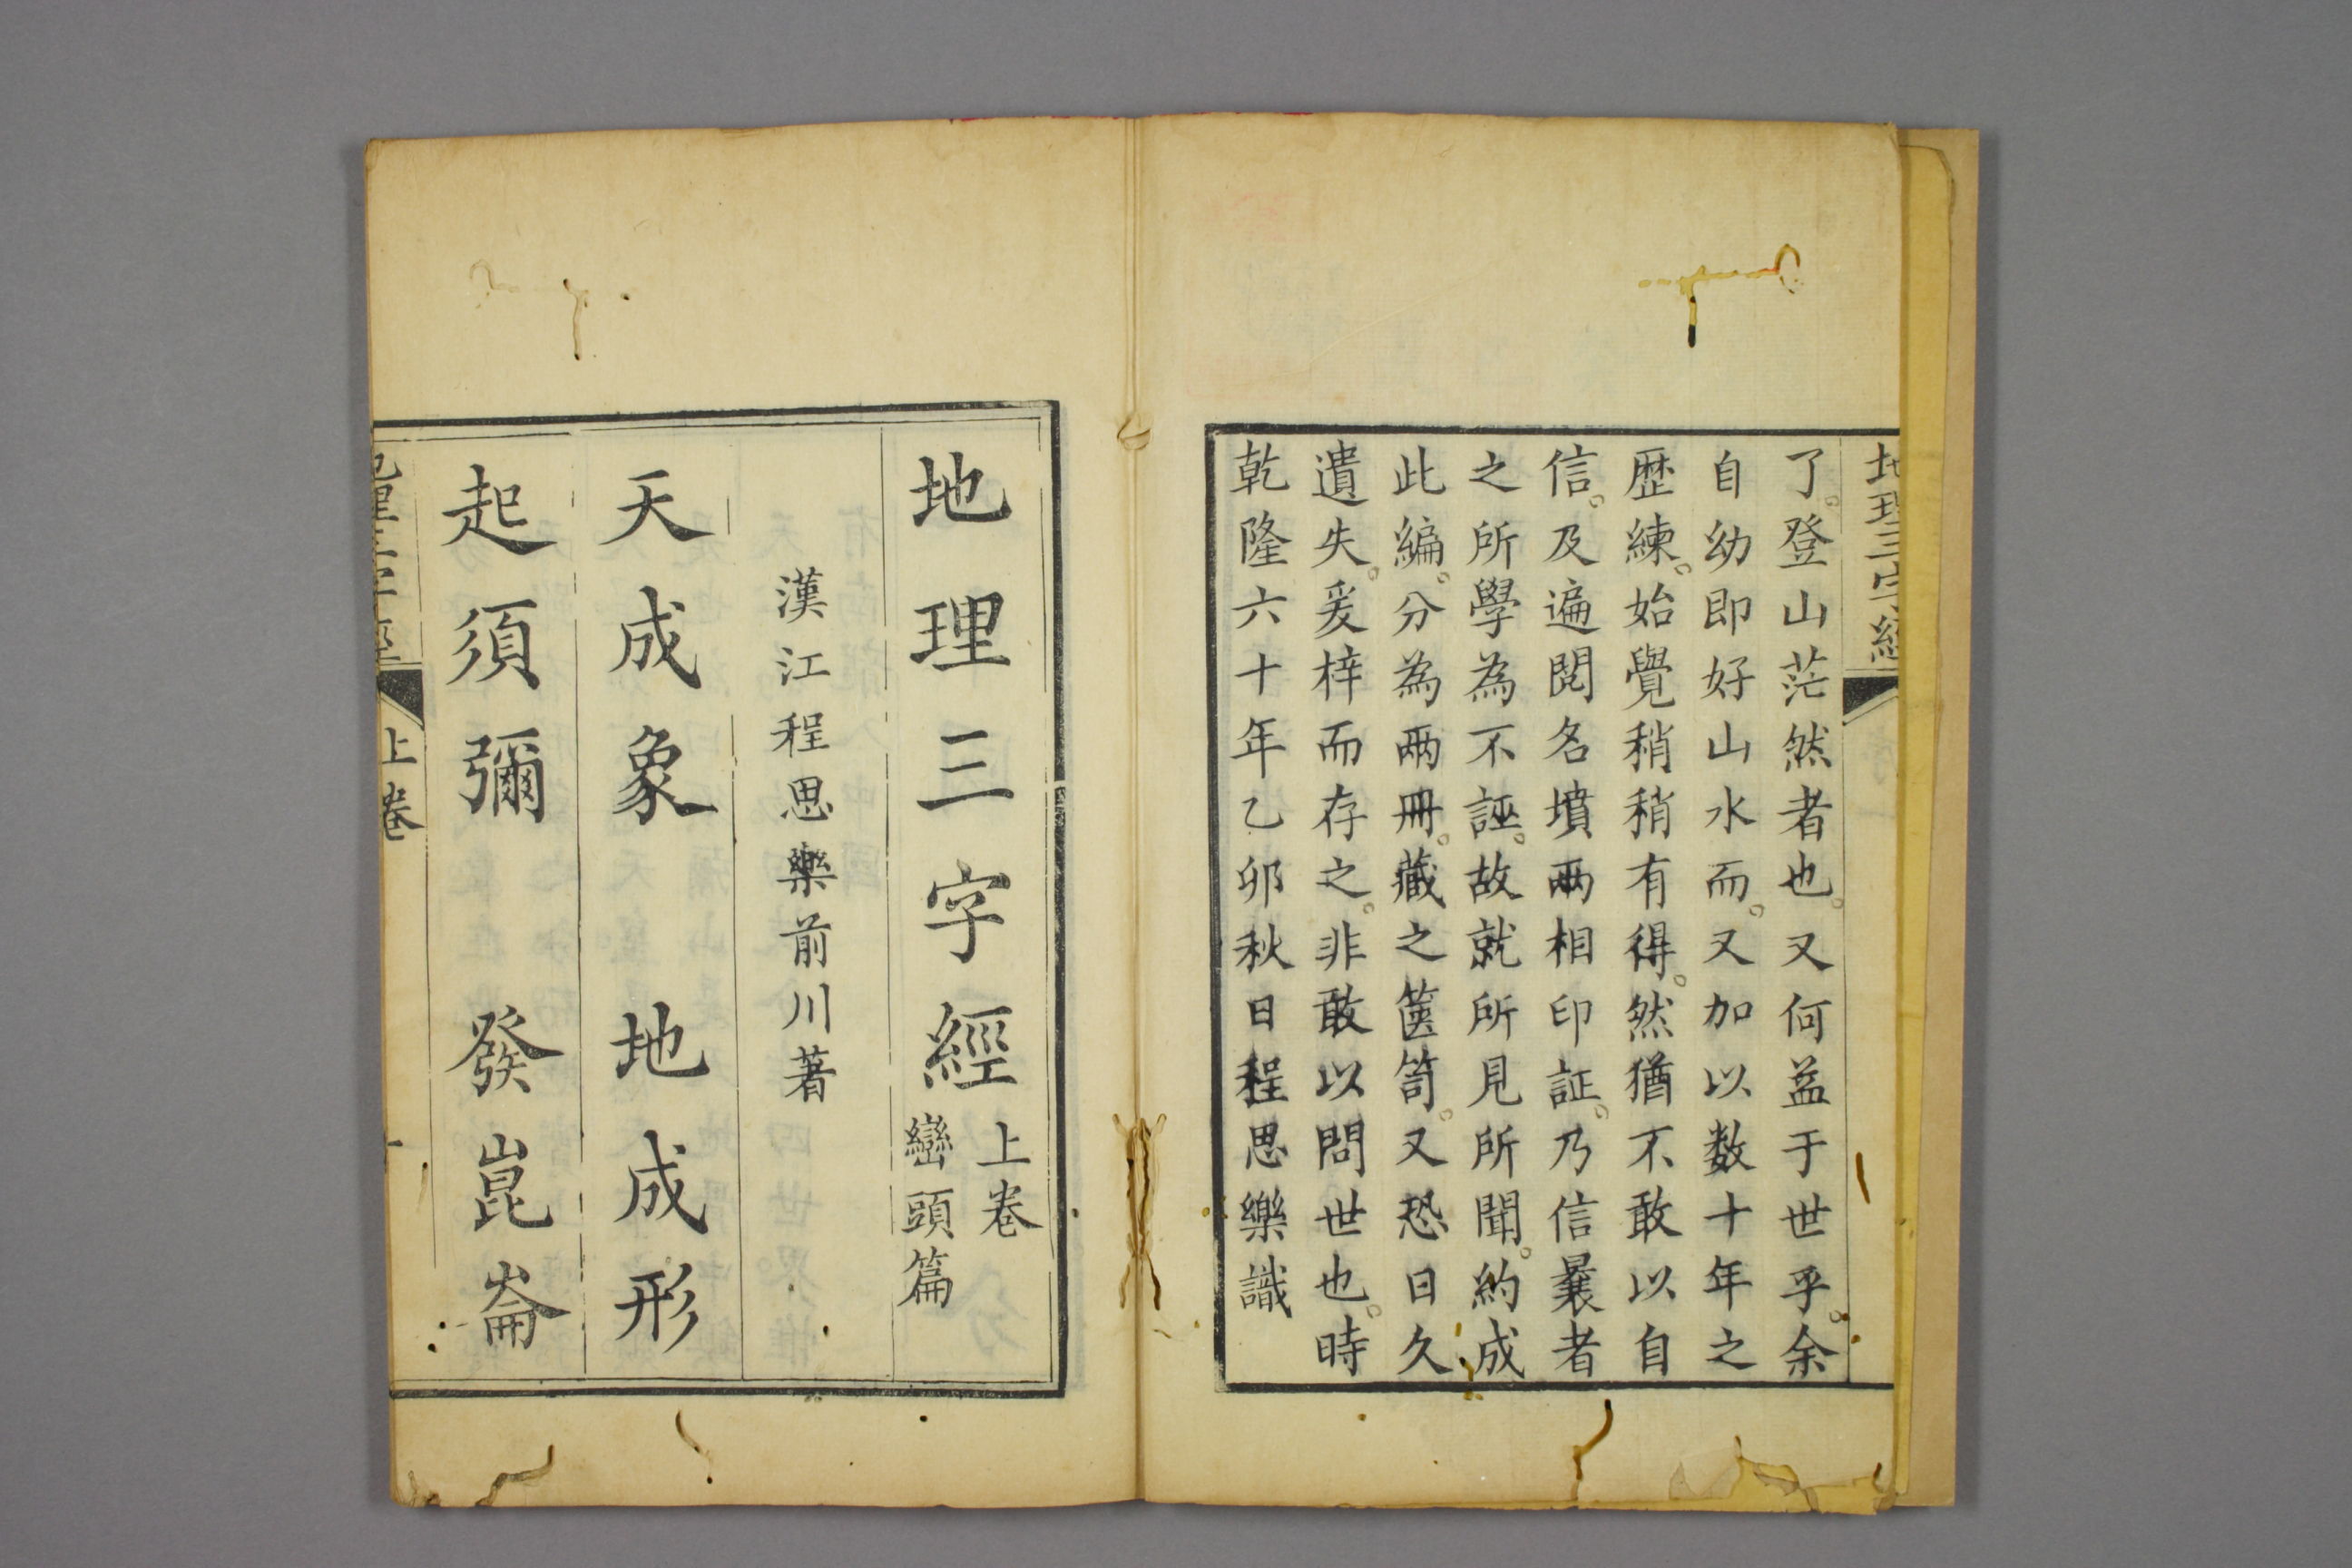 地理三字經
了。登山茫然者也。又何益于世乎。余
自幼即好山水而。又加以数十年之
歴練。始覺稍稍有得。然猶不敢以自
信。及遍閱名墳兩相印証。乃信曩者
之所學為不誣。故就所見所聞。約成
此編。分為兩冊。藏之篋笥。又恐日久
遺失。爰梓而存之。非敢以問世也。時
乾隆六十年乙卯秋日程思樂識
地理三字經
上卷
巒頭篇
漢江程思樂前川著
天成象 地成形
起須彌 發崑崙
上卷